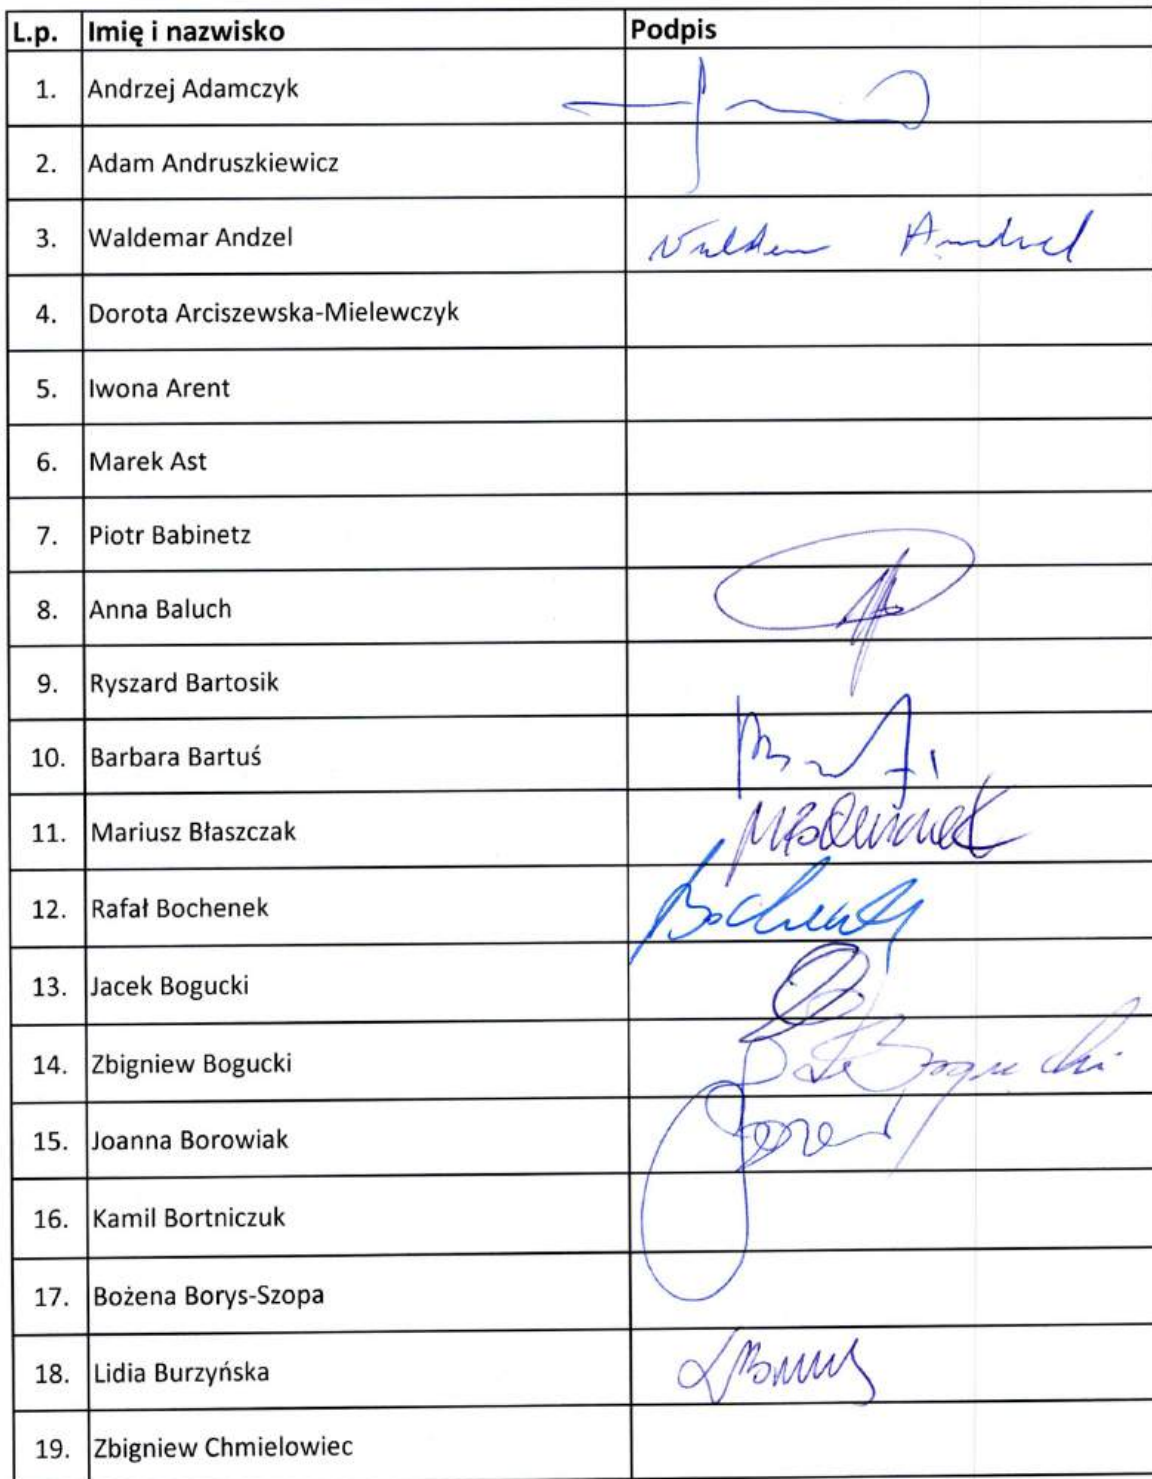 L.p. Imię i nazwisko Podpis
1. Andrzej Adamczyk
2. Adam Andruszkiewicz
3. Waldemar Andzel Waldemar Andzel
4. Dorota Arciszewska-Mielewczyk
5. Iwona Arent
6. Marek Ast
7. Piotr Babinetz
8. Anna Baluch
9. Ryszard Bartosik
10. Barbara Bartuś
11. Mariusz Błaszczak
12. Rafał Bochenek Bochenek
13. Jacek Bogucki
14. Zbigniew Bogucki Bogucki
15. Joanna Borowiak
16. Kamil Bortniczuk
17. Bożena Borys-Szopa
18. Lidia Burzyńska
19. Zbigniew Chmielowiec